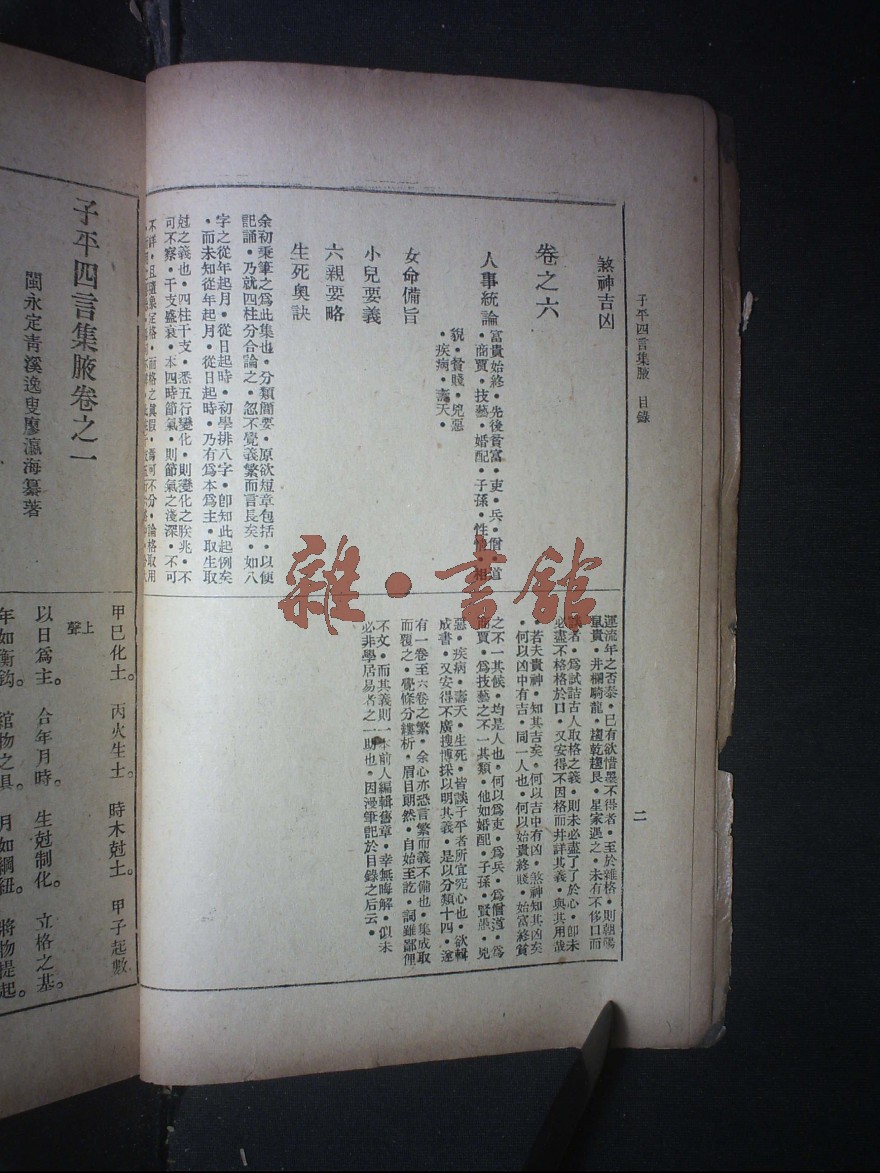 子平四言集腋　目錄
二
煞神吉凶
卷之六
人事統論
富貴始終・先後貧富・吏・兵・僧・道
・商賈・技藝・婚配・子孫・性情・相
貌・貧賤・兇惡
・疾病・壽夭・
女命備旨
小兒要義
六親要略
生死奧訣
余初秉筆之為此集也・分類簡要・原欲短章包括・以便
記誦・乃就四柱分合論之・忽不覺義繁而言長矣・如八
字之從年起月・從日起時・初學排八字・卽知此起例矣
・而未知從年起月・從日起時・乃有為本為主・取生取
尅之義也・四柱干支・悉五行變化・則變化之朕兆・不
可不察・干支盛衰・本四時節氣・則節氣之淺深・不可
不詳・且隨桑定格・而格之眞假・可不分・論格取用
運流年之否泰・已有欲惜墨不得者・至於雜格・則朝陽
鼠貴・井欄騎龍・趨乾趨艮・星家遇之・未有不侈口而
談者・為試詰古人取格之義・則未必盡了了於心・卽未
必盡不格格於口・又安得不因格而幷詳其義・與其用哉
・若夫貴神・知其吉矣・何以吉中有凶・煞神知其凶矣
・何以凶中有吉・同一人也・何以始貴終賤・始富終貧
之不一其候・均是人也・何以為吏・為兵・為僧道・為
商賈・為技藝之不一其類・他如婚配・子孫・賢愚・兇
惡・疾病・壽夭・生死・皆談子平者所宜究心也・欲輯
成書・又安得不廣搜博採以明其義・是以分類十四・遂
有一卷至六卷之繁・余心亦恐言繁而義不備也・集成取
而覆之・覺條分縷析・眉目朗然・自始至訖・詞雖鄙俚
不文・而其義則一本前人編輯舊章・幸無晦解・似未
必非學居易者之一助也・因漫筆記於目錄之后云・
子平四言集腋卷之一
閩永定靑溪逸叟廖瀛海纂著
甲巳化土。　丙火生土。　時木尅土。　甲子起數
上聲
以日為主。　合年月時。　生尅制化。　立格之基。
年如衡鈞。　綰物之具。　月如綱紐。　將物提起。
雜・書館